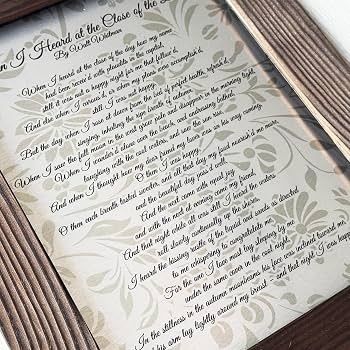 en I Heard at the Close of the D
By Walt Whitman
When I heard at the close of the day how my name
had been receiv'd with plaudits in the capitol,
still it was not a happy night for me that follow'd,
And else when I carous'd, or when my plans were accomplish'd,
still I was not happy,
But the day when I rose at dawn from the bed of perfect health, refresh'd,
singing, inhaling the ripe breath of autumn,
When I saw the full moon in the west grow pale and disappear in the morning light,
When I wander'd alone over the beach, and undressing bathed,
laughing with the cool waters, and saw the sun rise,
And when I thought how my dear friend my lover was on his way coming,
O then each breath tasted sweeter, and all that day my food nourish'd me more,
and the beautiful day pass'd well,
And the next came with equal joy,
and with the next at evening came my friend,
And that night while all was still I heard the waters
roll slowly continually up the shores,
I heard the hissing rustle of the liquid and sands as directed
to me whispering to congratulate me,
For the one I love most lay sleeping by me
under the same cover in the cool night,
In the stillness in the autumn moonbeams his face was inclined toward me,
his arm lay lightly around my breast – and that night I was happy